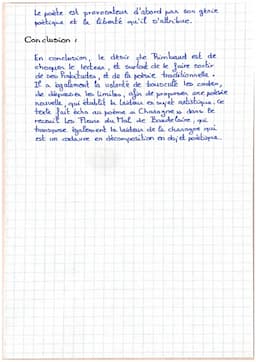 Le poète est provocateur d'abord par son génie
poétique et la liberté qu'il s'attribue.
Conclusion :
En conclusion, le désir de Rimbaud est de
choquer le lecteur, et surtout de le faire sortir
de ses habitudes, et de la poésie traditionnelle.
Il a également la volonté de bousculer les codes,
de dépasser les limites, afin de proposer une poésie
nouvelle, qui établit la laideur en sujet artistique. Ce
texte fait écho au poème « Charogne » dans le
recueil Les Fleurs du Mal de Baudelaire, qui
transpose également la laideur de la charogne qui
est un cadavre en décomposition en objet poétique.